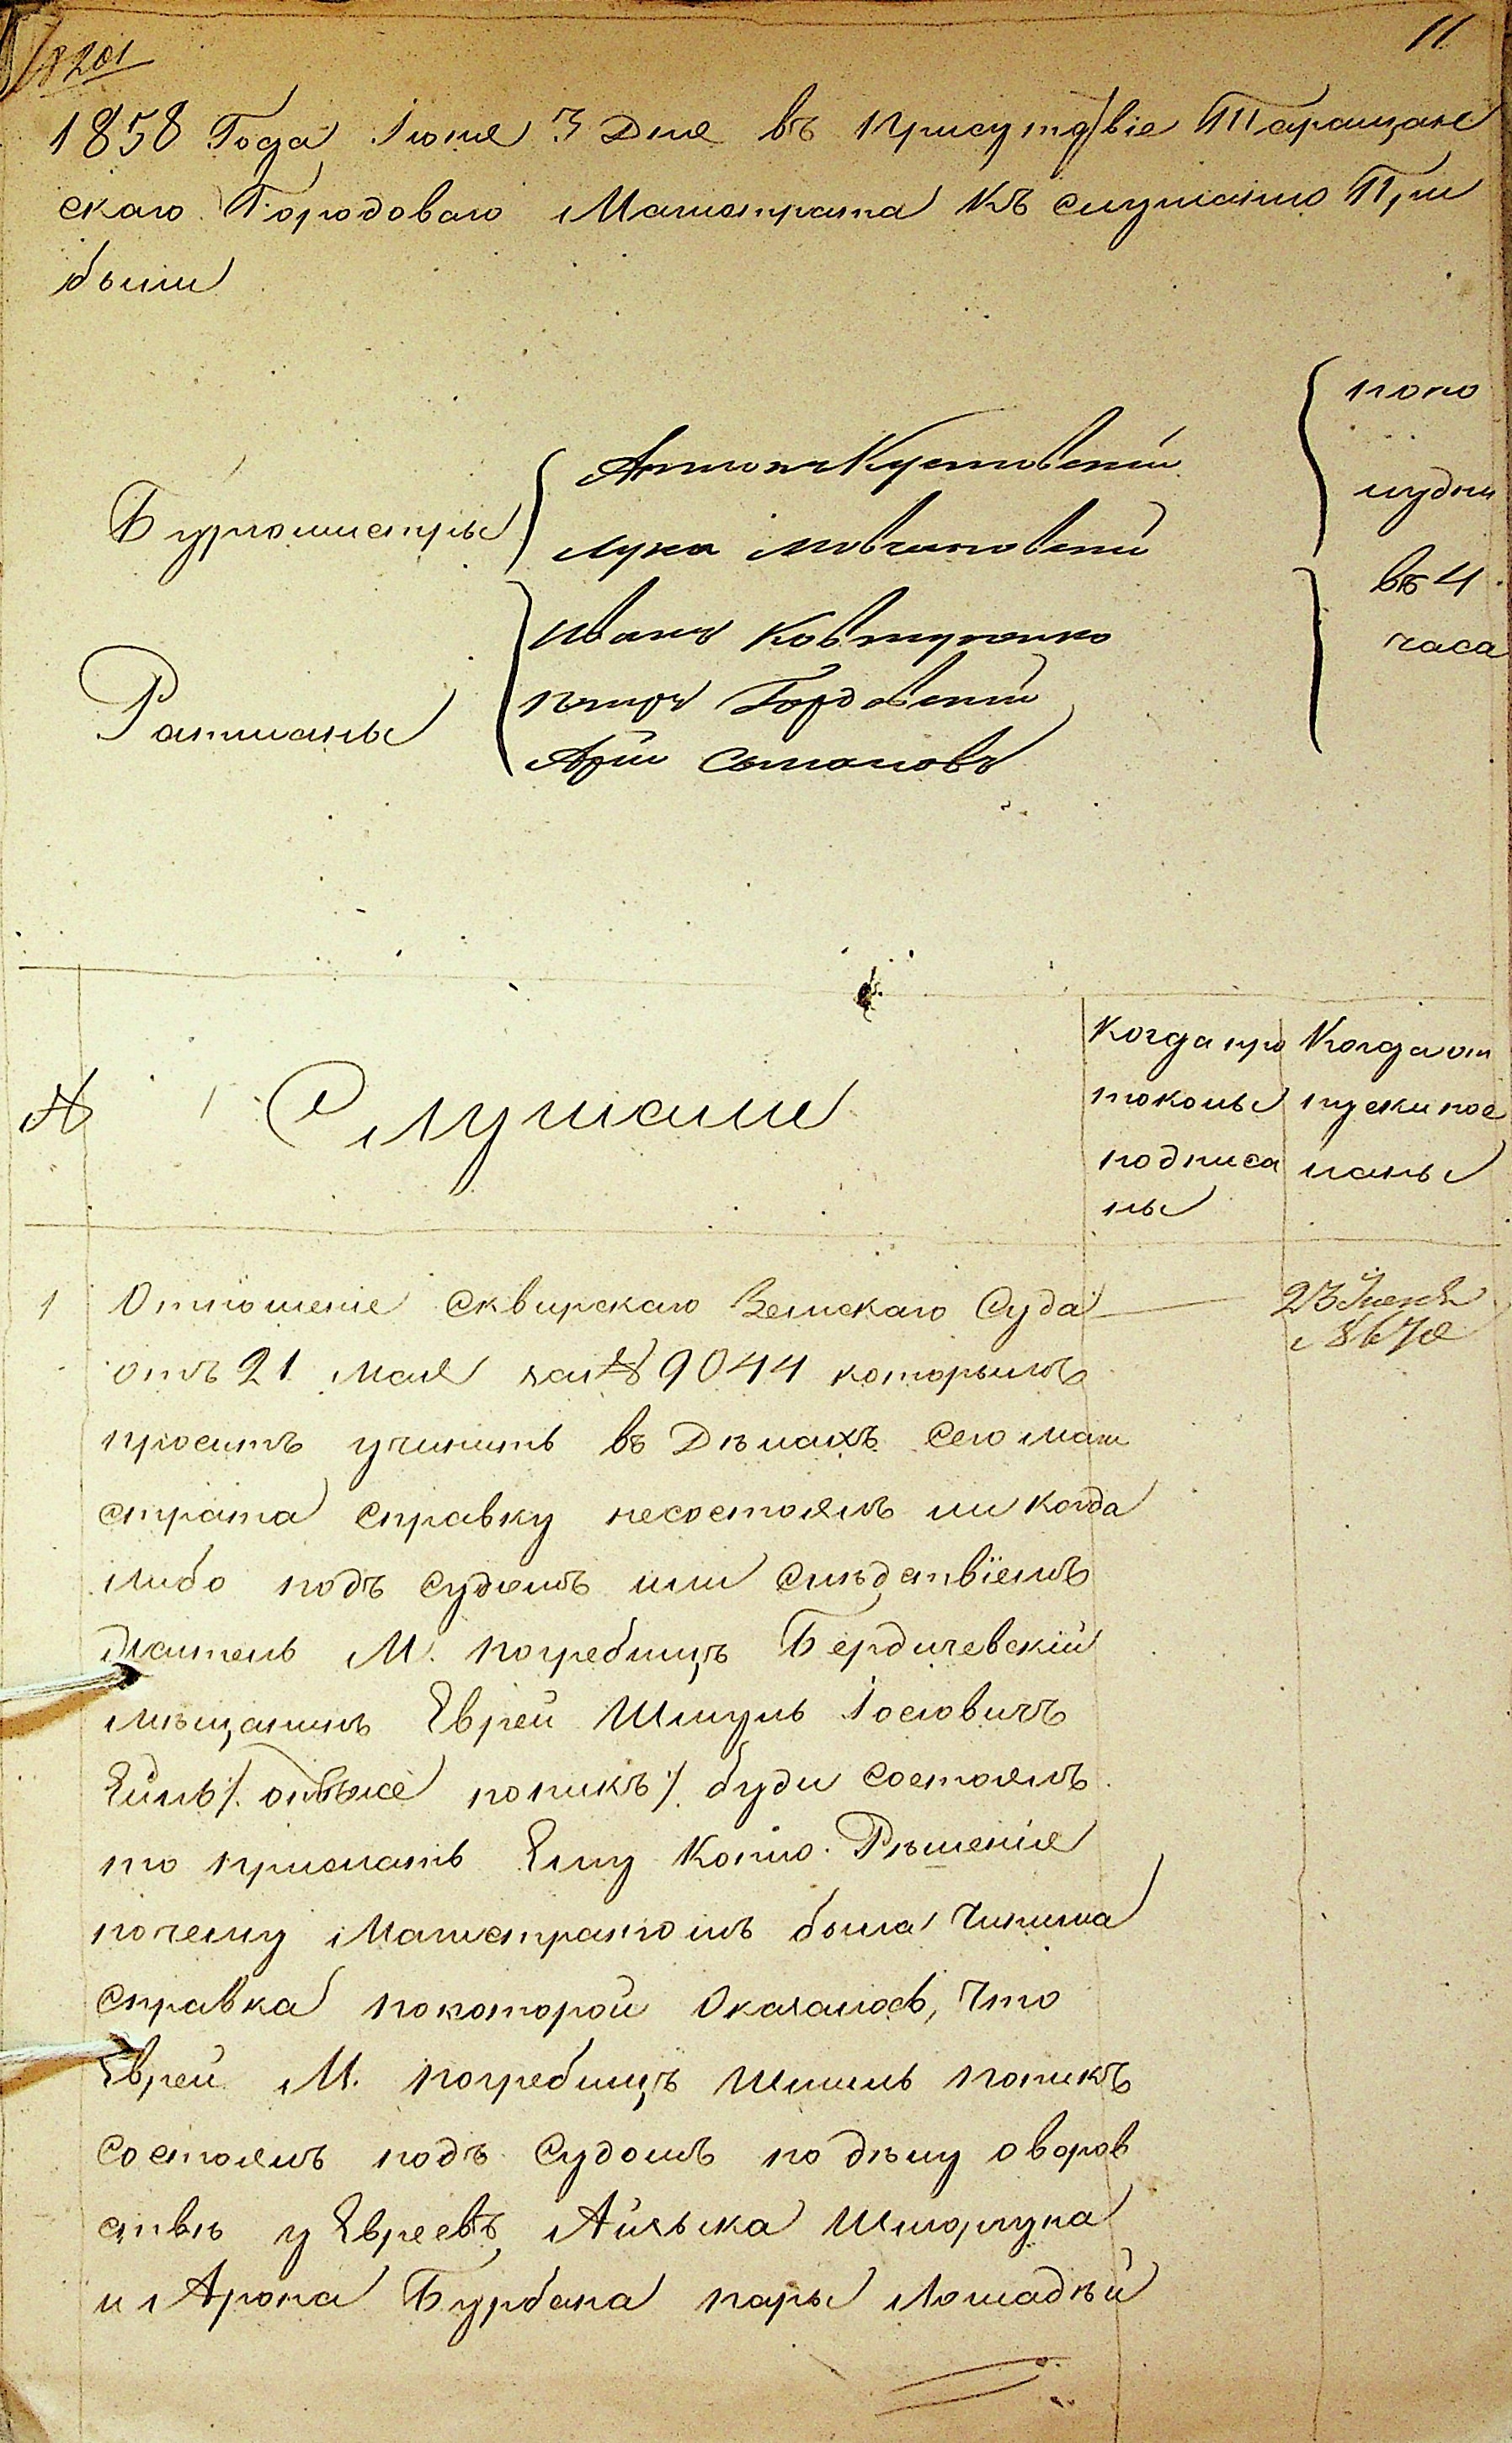 11
№ 201
1858 Года Іюня 3 Дня въ Присутствіе Таращан
скаго Городоваго Магистрата Къ слушанію При
были
Бургомистры
Антонъ Кустовскій
Лука Мовчановскій
Ратманы
Иванъ Ковтуненко
Петръ Гордовскій
Арій Сомановъ
попо
лудни
въ 4
часа
№
Слушали
Когда про
токолы
подписа
ны
Когда от
пуски пос
ланы
1 Отношеніе Сквирскаго Земскаго Суда
23 Іюня
№ 670
отъ 21 Мая за № 9044 которымъ
проситъ учинить въ Дѣлахъ сего маги
страта справку несостоялъ ли когда
либо подъ судомъ или слѣдствіемъ
житель М. погребищъ Бердичевскій
мѣщанинъ Еврей Шмуль Іосіовичъ
буди состоялъ
то прислать Ему Копію Рѣшенія
почему Магистратомъ была Чинима
справка покоторой Оказалось, Что
Еврей М. погребищъ Шмиль попикъ
состоялъ подъ Судомъ по дѣлу оворов
ствѣ у Евреевъ Айзыка Шморгуна
и Арона Бурбана пары Лошадѣй